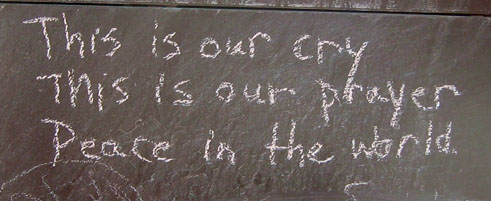 This is our cry
This is our prayer
Peace in the world.